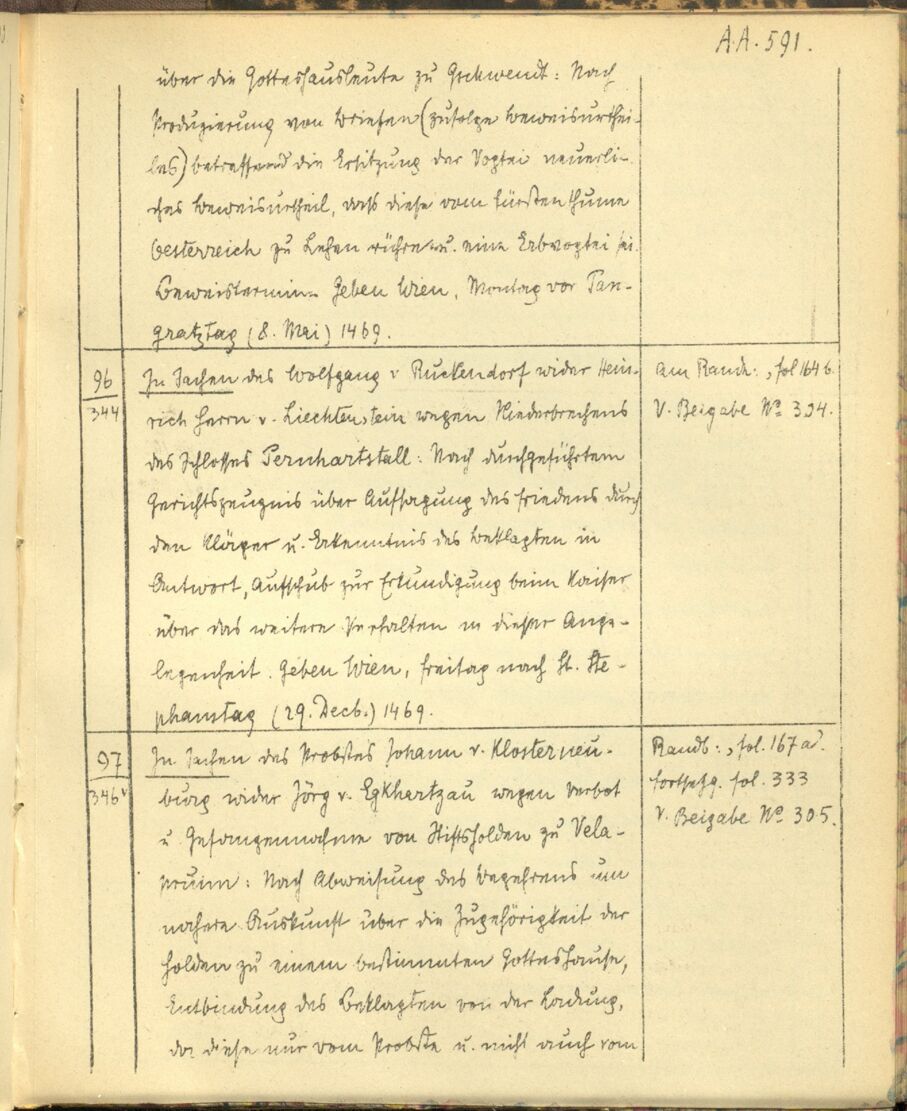 A.A. 591.
über die Gotteshausleute zu Gschwendt: Nach
Produzierung von Briefen (zufolge Beweisurthei-
les) betreffend die Ersitzung der Vogtei neuerli-
ches Beweisurtheil, dass diese vom Fürstenthume
Oesterreich zu Lehen rühre u. eine Erbvogtei sei.
Beweistermin. Geben Wien, Montag vor Pan-
gratztag (8. Mai) 1469.
96
344
In Sachen des Wolfgang v Ruckendorf wider Hein-
rich Herrn v. Liechtenstein wegen Niederbrechens
des Schlosses Pernhartstall: Nach durchgeführtem
Gerichtszeugnis über Aufsagung des Friedens durch
den Kläger u. Erkenntnis des Beklagten in
Antwort, Aufschub zur Erkundigung beim Kaiser
über das weitere Verhalten in dieser Ange-
legenheit. Geben Wien, Freitag nach St. Ste-
phanstag (29. Decb.) 1469.
Am Rande: , fol 164 b.
V. Beigabe Nº 304.
97
346v
In Sachen des Probstes Johann v. Klosterneu-
burg wider Jörg v. Egkhartzau wegen Verbot
u Gefangennahme von Stiftsholden zu Vela-
prunn: Nach Abweisung des Begehrens um
nähere Auskunft über die Zugehörigkeit der
Holden zu einem bestimmten Gotteshause,
Entbindung des Beklagten von der Ladung,
da diese nur vom Probste u. nicht auch vom
Randb: , fol. 167 a.
Fortsetzg. fol. 333
V. Beigabe Nº 305.